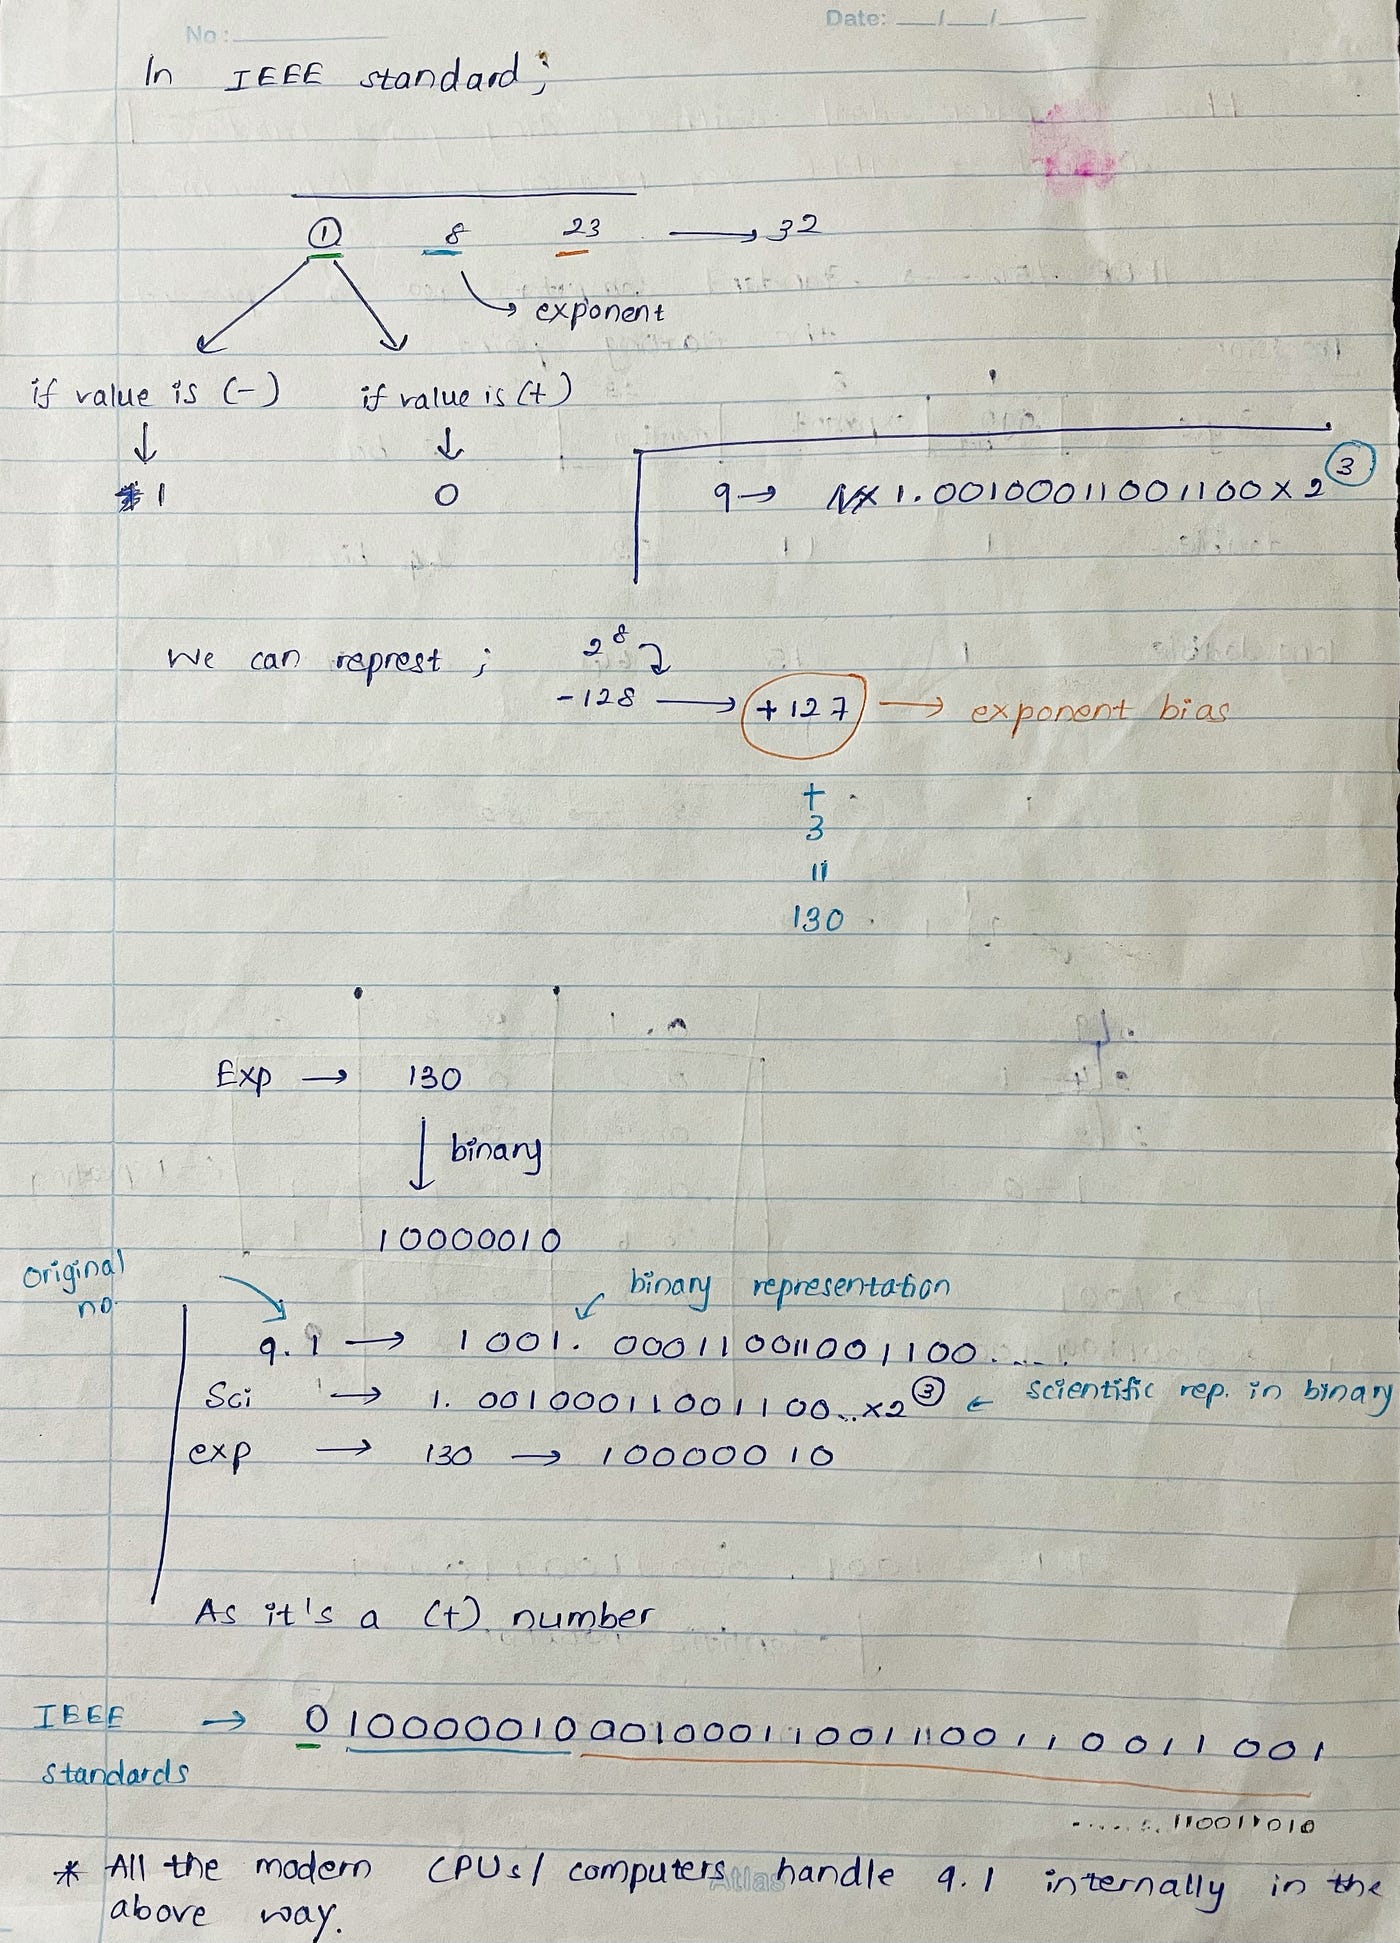 No: Date: __/__/__
In IEEE standard;
1 8 23 → 32
exponent
if value is (-) if value is (+)
↓ ↓
1 0
9 → 1.00100011001100 x 2^3
We can represt ; 2^8
-128 → +127 → exponent bias
+
3
=
130
Exp → 130
↓ binary
10000010
original no.
binary representation
9.1 → 1001.00011001100 1100.....
Sci → 1.00100011001100..x2^3 ← scientific rep. in binary
exp → 130 → 10000010
As it's a (+) number
IEEE standards → 0 10000010 00100011001100110011001
...... 110011010
* All the modern CPUs/ computers handle 9.1 internally in the
above way.
Atlas